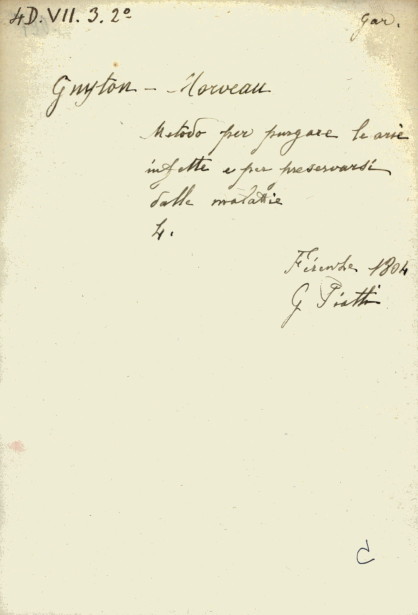 4D. VII. 3. 2º
gar.
Guyton - Morveau
Metodo per purgare le arie
infette e per preservarsi
dalle malattie
4.
Firenze 1804
G Piatti
C